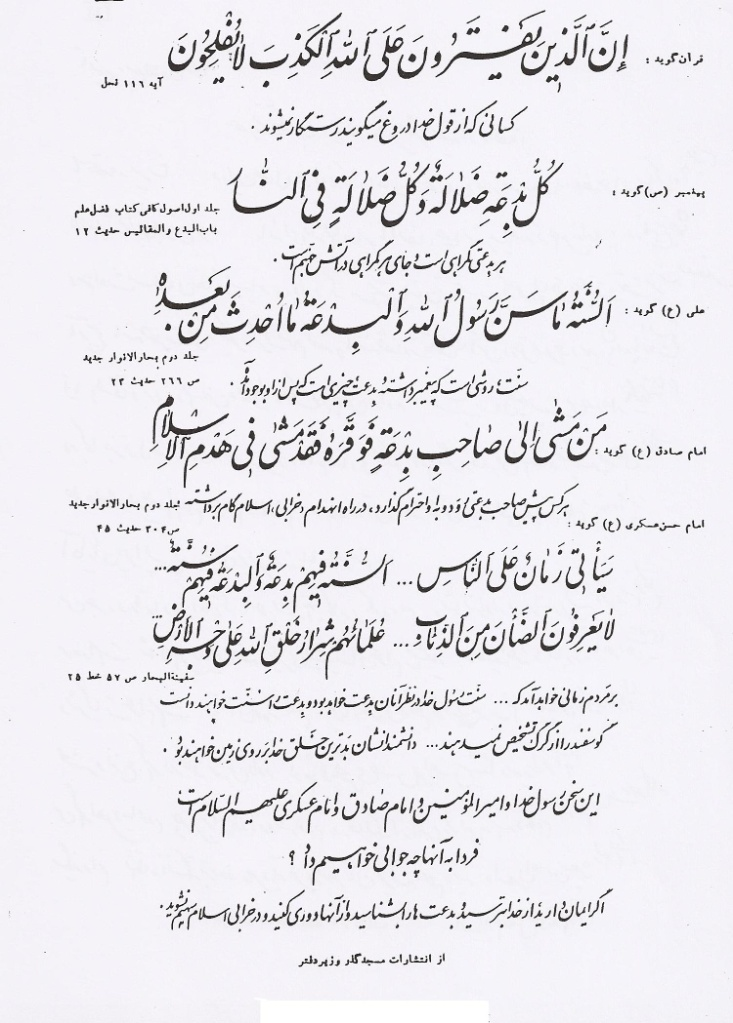 قرآن گوید : إِنَّ ٱلَّذِینَ یَفْتَرُونَ عَلَی ٱللهِ ٱلْکَذِبَ لٰا یُفْلِحُونَ
آیه ۱۱۶ نحل
کسانی که از قول خدا دروغ میگویند رستگار نمیشوند .
پیغمبر (ص) گوید : کُلُّ بِدْعَةٍ ضَلاٰلَةٌ وَ کُلُّ ضَلاٰلَةٍ فِی ٱلنّٰار
جلد اول اصول کافی کتاب فضل علم
باب البدع والمقائیس حدیث ۱۲
هر بدعتی گمراهی است و جای هر گمراهی در آتش جهنم است .
علی (ع) گوید : اَلسُّنَّةُ مٰا سَنَّ رَسُولُ ٱللهِ وَ ٱلْبِدْعَةُ مٰا اُحْدِثَ مِنْ بَعْدِهِ .
جلد دوم بحار الانوار جدید
ص ۲۶۶ حدیث ۲۳
سنت، روشی است که پیغمبر داشته و بدعت چیزی است که پس از او بوجود آمد .
امام صادق (ع) گوید : مَنْ مَشٰی اِلیٰ صٰاحِبِ بِدْعَةٍ فَوَقَّرَهُ فَقَدْ مَشیٰ فِی هَدْمِ ٱلْاِسْلٰامِ
هر کس پیش صاحب بدعتی رود و به او احترام گذارد ، در راه انهدام و خرابی ، اسلام گام برداشته
جلد دوم بحار الانوار جدید
ص ۳۰۴ حدیث ۴۵
امام حسن عسکری (ع) گوید :
سَیَأْتِی زَمٰانٌ عَلَی ٱلنّٰاسِ ... اَلسُّنَّةُ فِیهِمْ بِدْعَةٌ وَ ٱلْبِدْعَةُ فِیهِمْ سُنَّةٌ ...
لٰا یَعْرِفُونَ ٱلضَّأْنَ مِنَ ٱلذِّئٰابِ ... عُلَمٰائُهُمْ شِرٰارُ خَلْقِ ٱللهِ عَلیٰ وَجْهِ ٱلْأَرْضِ
سفینة البحار ص ۵۷ خط ۲۵
بر مردم زمانی خواهد آمد که ... سنت رسول خدا در نظر آنان بدعت خواهد بود و بدعت را سنت خواهند دانست
گوسفند را از گرگ تشخیص نمیدهند ... دانشمندانشان بدترین خلق خدا بر روی زمین خواهند بود .
این سخن رسول خدا و امیر المؤمنین و امام صادق و امام عسکری علیهم السلام است
فردا به آنها چه جوابی خواهیم داد ؟
اگر ایمان دارید از خدا بترسید و بدعت ها را بشناسید و از آنها دوری کنید و در خرابی اسلام سهیم نشوید .
از انتشارات مسجد گذر وزیر دفتر